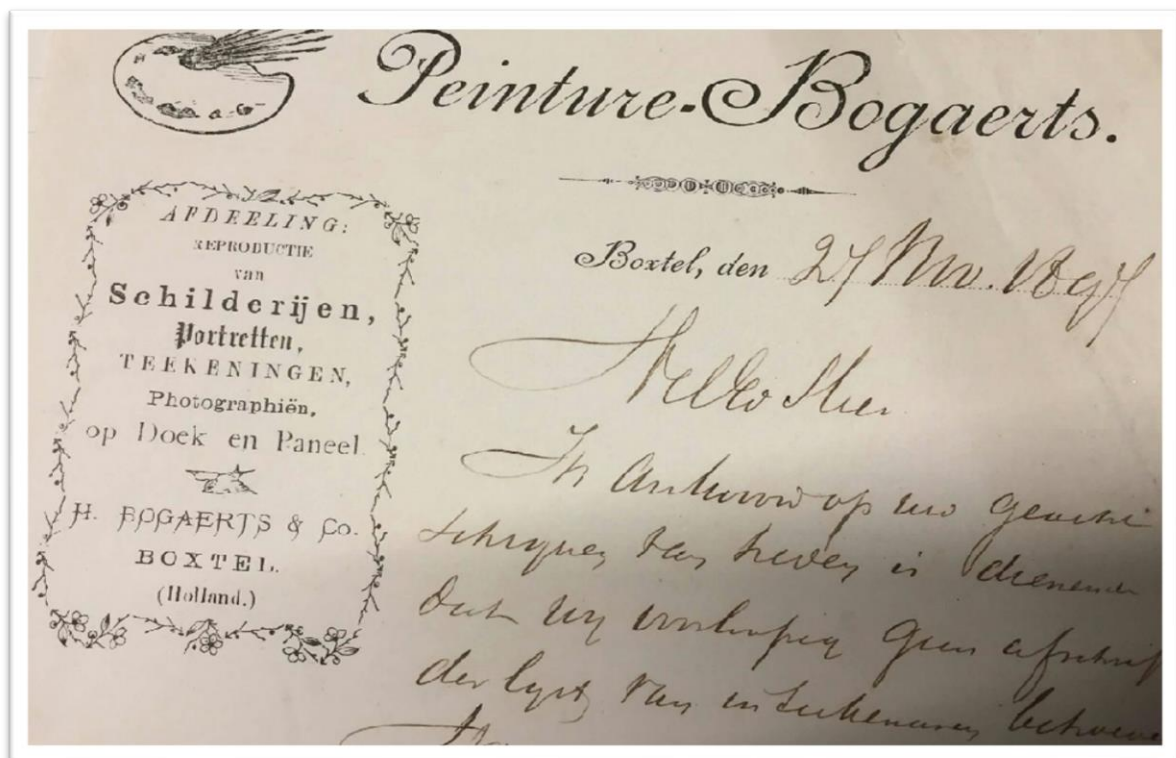 Peinture-Bogaerts.
AFDEELING:
REPRODUCTIE
van
Schilderijen,
Portretten,
TEEKENINGEN,
Photographiën,
op Doek en Paneel
H. BOGAERTS & Co.
BOXTEL.
(Holland.)
Boxtel, den 27 Nov. 1897
WelEd Heer
In antwoord op uw geacht
schrijven van heden is dienende
dat wij voorloopig geen afschrift
der lijst van inteekenaren